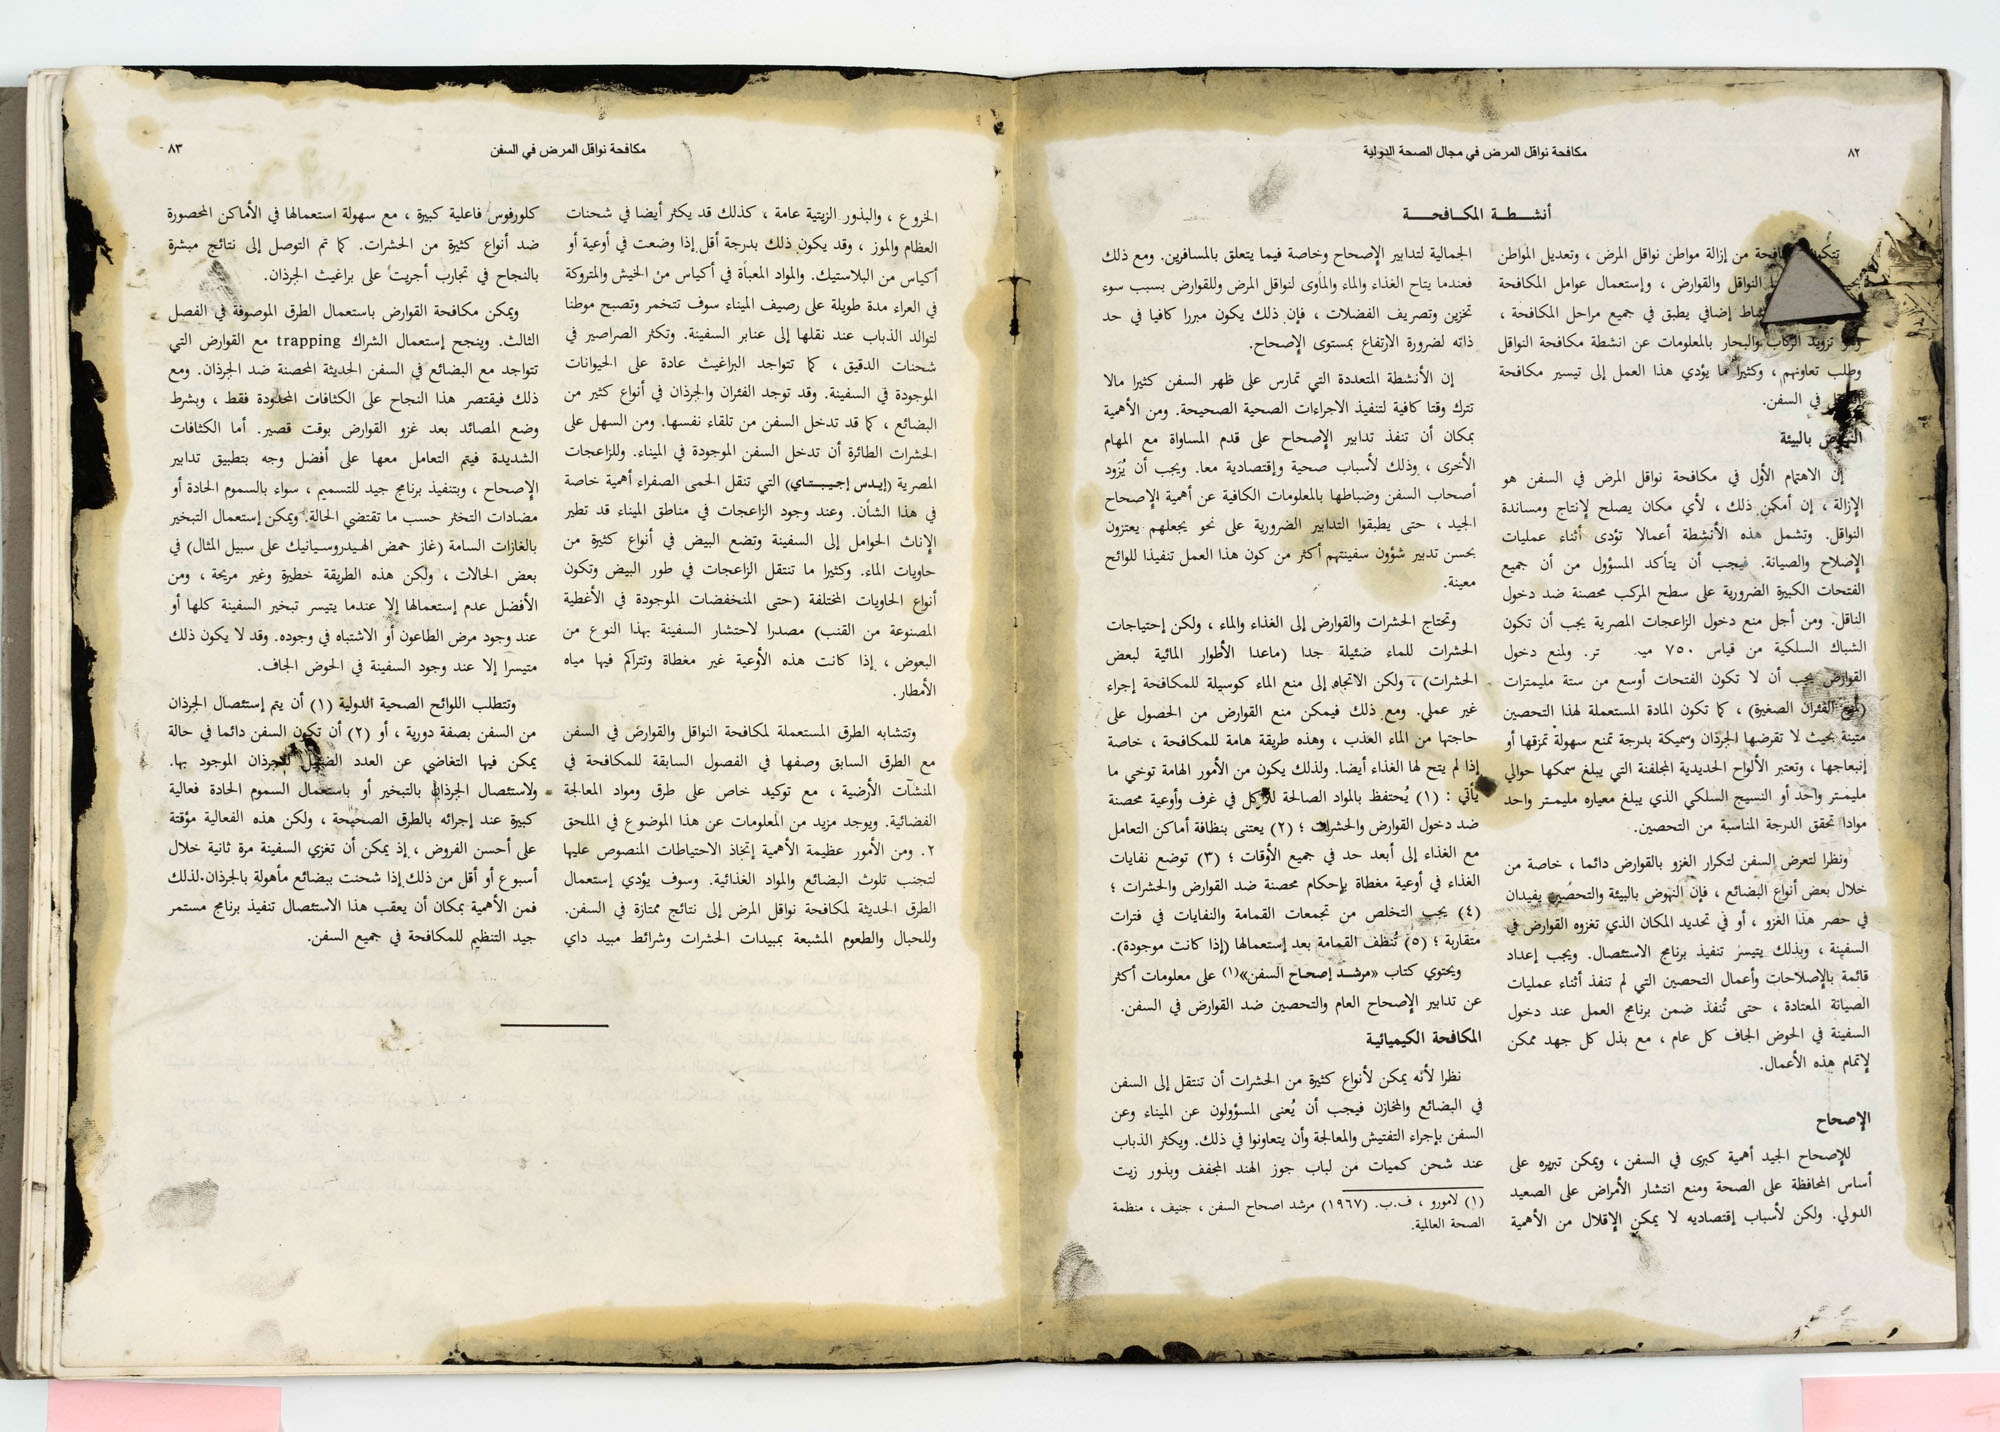 ٨٢
مكافحة نواقل المرض في مجال الصحة الدولية
أنشـطـة المكـافحـة
تتكون من إزالة مواطن نواقل المرض ، وتعديل المواطن
النواقل والقوارض ، وإستعمال عوامل المكافحة
إضافي يطبق في جميع مراحل المكافحة ،
وهو تزويد الركاب والبحار بالمعلومات عن انشطة مكافحة النواقل
وطلب تعاونهم ، وكثيرا ما يؤدي هذا العمل إلى تيسير مكافحة
في السفن.
النهوض بالبيئة
إن الاهتمام الأول في مكافحة نواقل المرض في السفن هو
الإزالة ، إن أمكن ذلك ، لأي مكان يصلح لإنتاج ومساندة
النواقل. وتشمل هذه الأنشطة أعمالا تؤدى أثناء عمليات
الإصلاح والصيانة. فيجب أن يتأكد المسؤول من أن جميع
الفتحات الكبيرة الضرورية على سطح المركب محصنة ضد دخول
الناقل. ومن أجل منع دخول الزاعجات المصرية يجب أن تكون
الشباك السلكية من قياس ٧٥٠ ميـ تر. ولمنع دخول
القوارض يجب أن لا تكون الفتحات أوسع من ستة مليمترات
(لمنع الفئران الصغيرة) ، كما تكون المادة المستعملة لهذا التحصين
متينة بحيث لا تقرضها الجرذان وسميكة بدرجة تمنع سهولة تمزقها أو
إنبعاجها ، وتعتبر الألواح الحديدية المجلفنة التي يبلغ سمكها حوالي
مليمتر واحد أو النسيج السلكي الذي يبلغ معياره مليمتر واحد
موادا تحقق الدرجة المناسبة من التحصين.
ونظرا لتعرض السفن لتكرار الغزو بالقوارض دائما ، خاصة من
خلال بعض أنواع البضائع ، فإن النهوض بالبيئة والتحصين يفيدان
في حصر هذا الغزو ، أو في تحديد المكان الذي تغزوه القوارض في
السفينة ، وبذلك يتيسر تنفيذ برنامج الاستئصال. ويجب إعداد
قائمة بالإصلاحات وأعمال التحصين التي لم تنفذ أثناء عمليات
الصيانة المعتادة ، حتى تُنفذ ضمن برنامج العمل عند دخول
السفينة في الحوض الجاف كل عام ، مع بذل كل جهد ممكن
لإتمام هذه الأعمال.
الإصحاح
للإصحاح الجيد أهمية كبرى في السفن ، ويمكن تبريره على
أساس المحافظة على الصحة ومنع انتشار الأمراض على الصعيد
الدولي. ولكن لأسباب إقتصاديه لا يمكن الإقلال من الأهمية
الجمالية لتدابير الإصحاح وخاصة فيما يتعلق بالمسافرين. ومع ذلك
فعندما يتاح الغذاء والماء والمأوى لنواقل المرض وللقوارض بسبب سوء
تخزين وتصريف الفضلات ، فإن ذلك يكون مبررا كافيا في حد
ذاته لضرورة الارتفاع بمستوى الإصحاح.
إن الأنشطة المتعددة التي تمارس على ظهر السفن كثيرا مالا
تترك وقتا كافية لتنفيذ الاجراءات الصحية الصحيحة. ومن الأهمية
بمكان أن تنفذ تدابير الإصحاح على قدم المساواة مع المهام
الأخرى ، وذلك لأسباب صحية وإقتصادية معا. ويجب أن يُزود
أصحاب السفن وضباطها بالمعلومات الكافية عن أهمية الإصحاح
الجيد ، حتى يطبقوا التدابير الضرورية على نحو يجعلهم يعتزون
بحسن تدبير شؤون سفينتهم أكثر من كون هذا العمل تنفيذا للوائح
معينة.
وتحتاج الحشرات والقوارض إلى الغذاء والماء ، ولكن إحتياجات
الحشرات للماء ضئيلة جدا (ماعدا الأطوار المائية لبعض
الحشرات) ، ولكن الاتجاه إلى منع الماء كوسيلة للمكافحة إجراء
غير عملي. ومع ذلك فيمكن منع القوارض من الحصول على
حاجتها من الماء العذب ، وهذه طريقة هامة للمكافحة ، خاصة
إذا لم يتح لها الغذاء أيضا. ولذلك يكون من الأمور الهامة توخي ما
يأتي : (١) يُحتفظ بالمواد الصالحة للأكل في غرف وأوعية محصنة
ضد دخول القوارض والحشرات ؛ (٢) يعتنى بنظافة أماكن التعامل
مع الغذاء إلى أبعد حد في جميع الأوقات ؛ (٣) توضع نفايات
الغذاء في أوعية مغطاة بإحكام محصنة ضد القوارض والحشرات ؛
(٤) يجب التخلص من تجمعات القمامة والنفايات في فترات
متقاربة ؛ (٥) تُنظف القمامة بعد إستعمالها (إذا كانت موجودة).
ويحتوي كتاب «مرشـد إصحـاح السفن»(١) على معلومات أكثر
عن تدابير الإصحاح العام والتحصين ضد القوارض في السفن.
المكافحة الكيميائية
نظرا لأنه يمكن لأنواع كثيرة من الحشرات أن تنتقل إلى السفن
في البضائع والمخازن فيجب أن يُعنى المسؤولون عن الميناء وعن
السفن بإجراء التفتيش والمعالجة وأن يتعاونوا في ذلك. ويكثر الذباب
عند شحن كميات من لباب جوز الهند المجفف وبذور زيت
(١) لامورو ، ف.ب. (١٩٦٧) مرشد اصحاح السفن ، جنيف ، منظمة
الصحة العالمية.
مكافحة نواقل المرض في السفن
٨٣
الخروع ، والبذور الزيتية عامة ، كذلك قد يكثر أيضا في شحنات
العظام والموز ، وقد يكون ذلك بدرجة أقل إذا وضعت في أوعية أو
أكياس من البلاستيك. والمواد المعبأة في أكياس من الخيش والمتروكة
في العراء مدة طويلة على رصيف الميناء سوف تتخمر وتصبح موطنا
لتوالد الذباب عند نقلها إلى عنابر السفينة. وتكثر الصراصير في
شحنات الدقيق ، كما تتواجد البراغيث عادة على الحيوانات
الموجودة في السفينة. وقد توجد الفئران والجرذان في أنواع كثير من
البضائع ، كما قد تدخل السفن من تلقاء نفسها. ومن السهل على
الحشرات الطائرة أن تدخل السفن الموجودة في الميناء. وللزاعجات
المصرية (إيـدس إجيبتـاي) التي تنقل الحمى الصفراء أهمية خاصة
في هذا الشأن. وعند وجود الزاعجات في مناطق الميناء قد تطير
الإناث الحوامل إلى السفينة وتضع البيض في أنواع كثيرة من
حاويات الماء. وكثيرا ما تنتقل الزاعجات في طور البيض وتكون
أنواع الحاويات المختلفة (حتى المنخفضات الموجودة في الأغطية
المصنوعة من القنب) مصدرا لاحتشار السفينة بهذا النوع من
البعوض ، إذا كانت هذه الأوعية غير مغطاة وتتراكم فيها مياه
الأمطار.
وتتشابه الطرق المستعملة لمكافحة النواقل والقوارض في السفن
مع الطرق السابق وصفها في الفصول السابقة للمكافحة في
المنشآت الأرضية ، مع توكيد خاص على طرق ومواد المعالجة
الفضائية. ويوجد مزيد من المعلومات عن هذا الموضوع في الملحق
٢. ومن الأمور عظيمة الأهمية إتخاذ الاحتياطات المنصوص عليها
لتجنب تلوث البضائع والمواد الغذائية. وسوف يؤدي إستعمال
الطرق الحديثة لمكافحة نواقل المرض إلى نتائج ممتازة في السفن.
وللحبال والطعوم المشبعة بمبيدات الحشرات وشرائط مبيد داي
كلورفوس فاعلية كبيرة ، مع سهولة استعمالها في الأماكن المحصورة
ضد أنواع كثيرة من الحشرات. كما تم التوصل إلى نتائج مبشرة
بالنجاح في تجارب أجريت على براغيث الجرذان.
ويمكن مكافحة القوارض باستعمال الطرق الموصوفة في الفصل
الثالث. وينجح إستعمال الشراك trapping مع القوارض التي
تتواجد مع البضائع في السفن الحديثة المحصنة ضد الجرذان. ومع
ذلك فيقتصر هذا النجاح على الكثافات المحدودة فقط ، وبشرط
وضع المصائد بعد غزو القوارض بوقت قصير. أما الكثافات
الشديدة فيتم التعامل معها على أفضل وجه بتطبيق تدابير
الإصحاح ، وبتنفيذ برنامج جيد للتسميم ، سواء بالسموم الحادة أو
مضادات التخثر حسب ما تقتضي الحالة. ويمكن إستعمال التبخير
بالغازات السامة (غاز حمض الهيـدروسـيانيك على سبيل المثال) في
بعض الحالات ، ولكن هذه الطريقة خطيرة وغير مريحة ، ومن
الأفضل عدم إستعمالها إلا عندما يتيسر تبخير السفينة كلها أو
عند وجود مرض الطاعون أو الاشتباه في وجوده. وقد لا يكون ذلك
متيسرا إلا عند وجود السفينة في الحوض الجاف.
وتتطلب اللوائح الصحية الدولية (١) أن يتم إستئصال الجرذان
من السفن بصفة دورية ، أو (٢) أن تكون السفن دائما في حالة
يمكن فيها التغاضي عن العدد الضئيل للجرذان الموجود بها.
ولاستئصال الجرذان بالتبخير أو باستعمال السموم الحادة فعالية
كبيرة عند إجرائه بالطرق الصحيحة ، ولكن هذه الفعالية مؤقتة
على أحسن الفروض ، إذ يمكن أن تغزي السفينة مرة ثانية خلال
أسبوع أو أقل من ذلك إذا شحنت ببضائع مأهولة بالجرذان. لذلك
فمن الأهمية بمكان أن يعقب هذا الاستئصال تنفيذ برنامج مستمر
جيد التنظيم للمكافحة في جميع السفن.